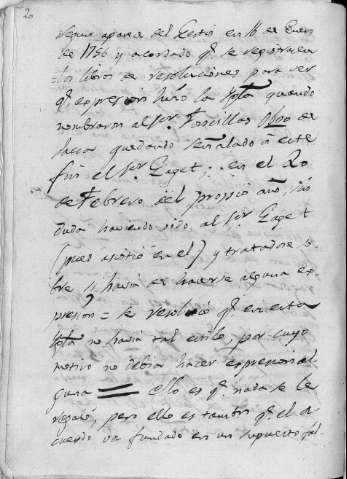 20
segun aparece del Gestis en 16 de Enero
de 1756 y acordado qe. se registrasen
los libros de resoluciones para ver
qe. expresion hizo la Igla. quando
nombraron al Sor. Torecillas Obpo de
Jaca quedando señalado a este
fin el Sor. Gaget, en el 20
de Febrero del propio año, sin
duda haviendo oido al Sor. Gaget
(pues asistio en el) y tratadose so-
bre si havia de hacerse alguna ex-
presion = se resolvió qe. en esta
Igla. no havia tal estilo, por cuyo
motivo no debia hacer expresion al-
guna = ello es qe. nada se le
regaló, pero ello es tambn. qe. el a-
cuerdo va fundado en un supuesto fal